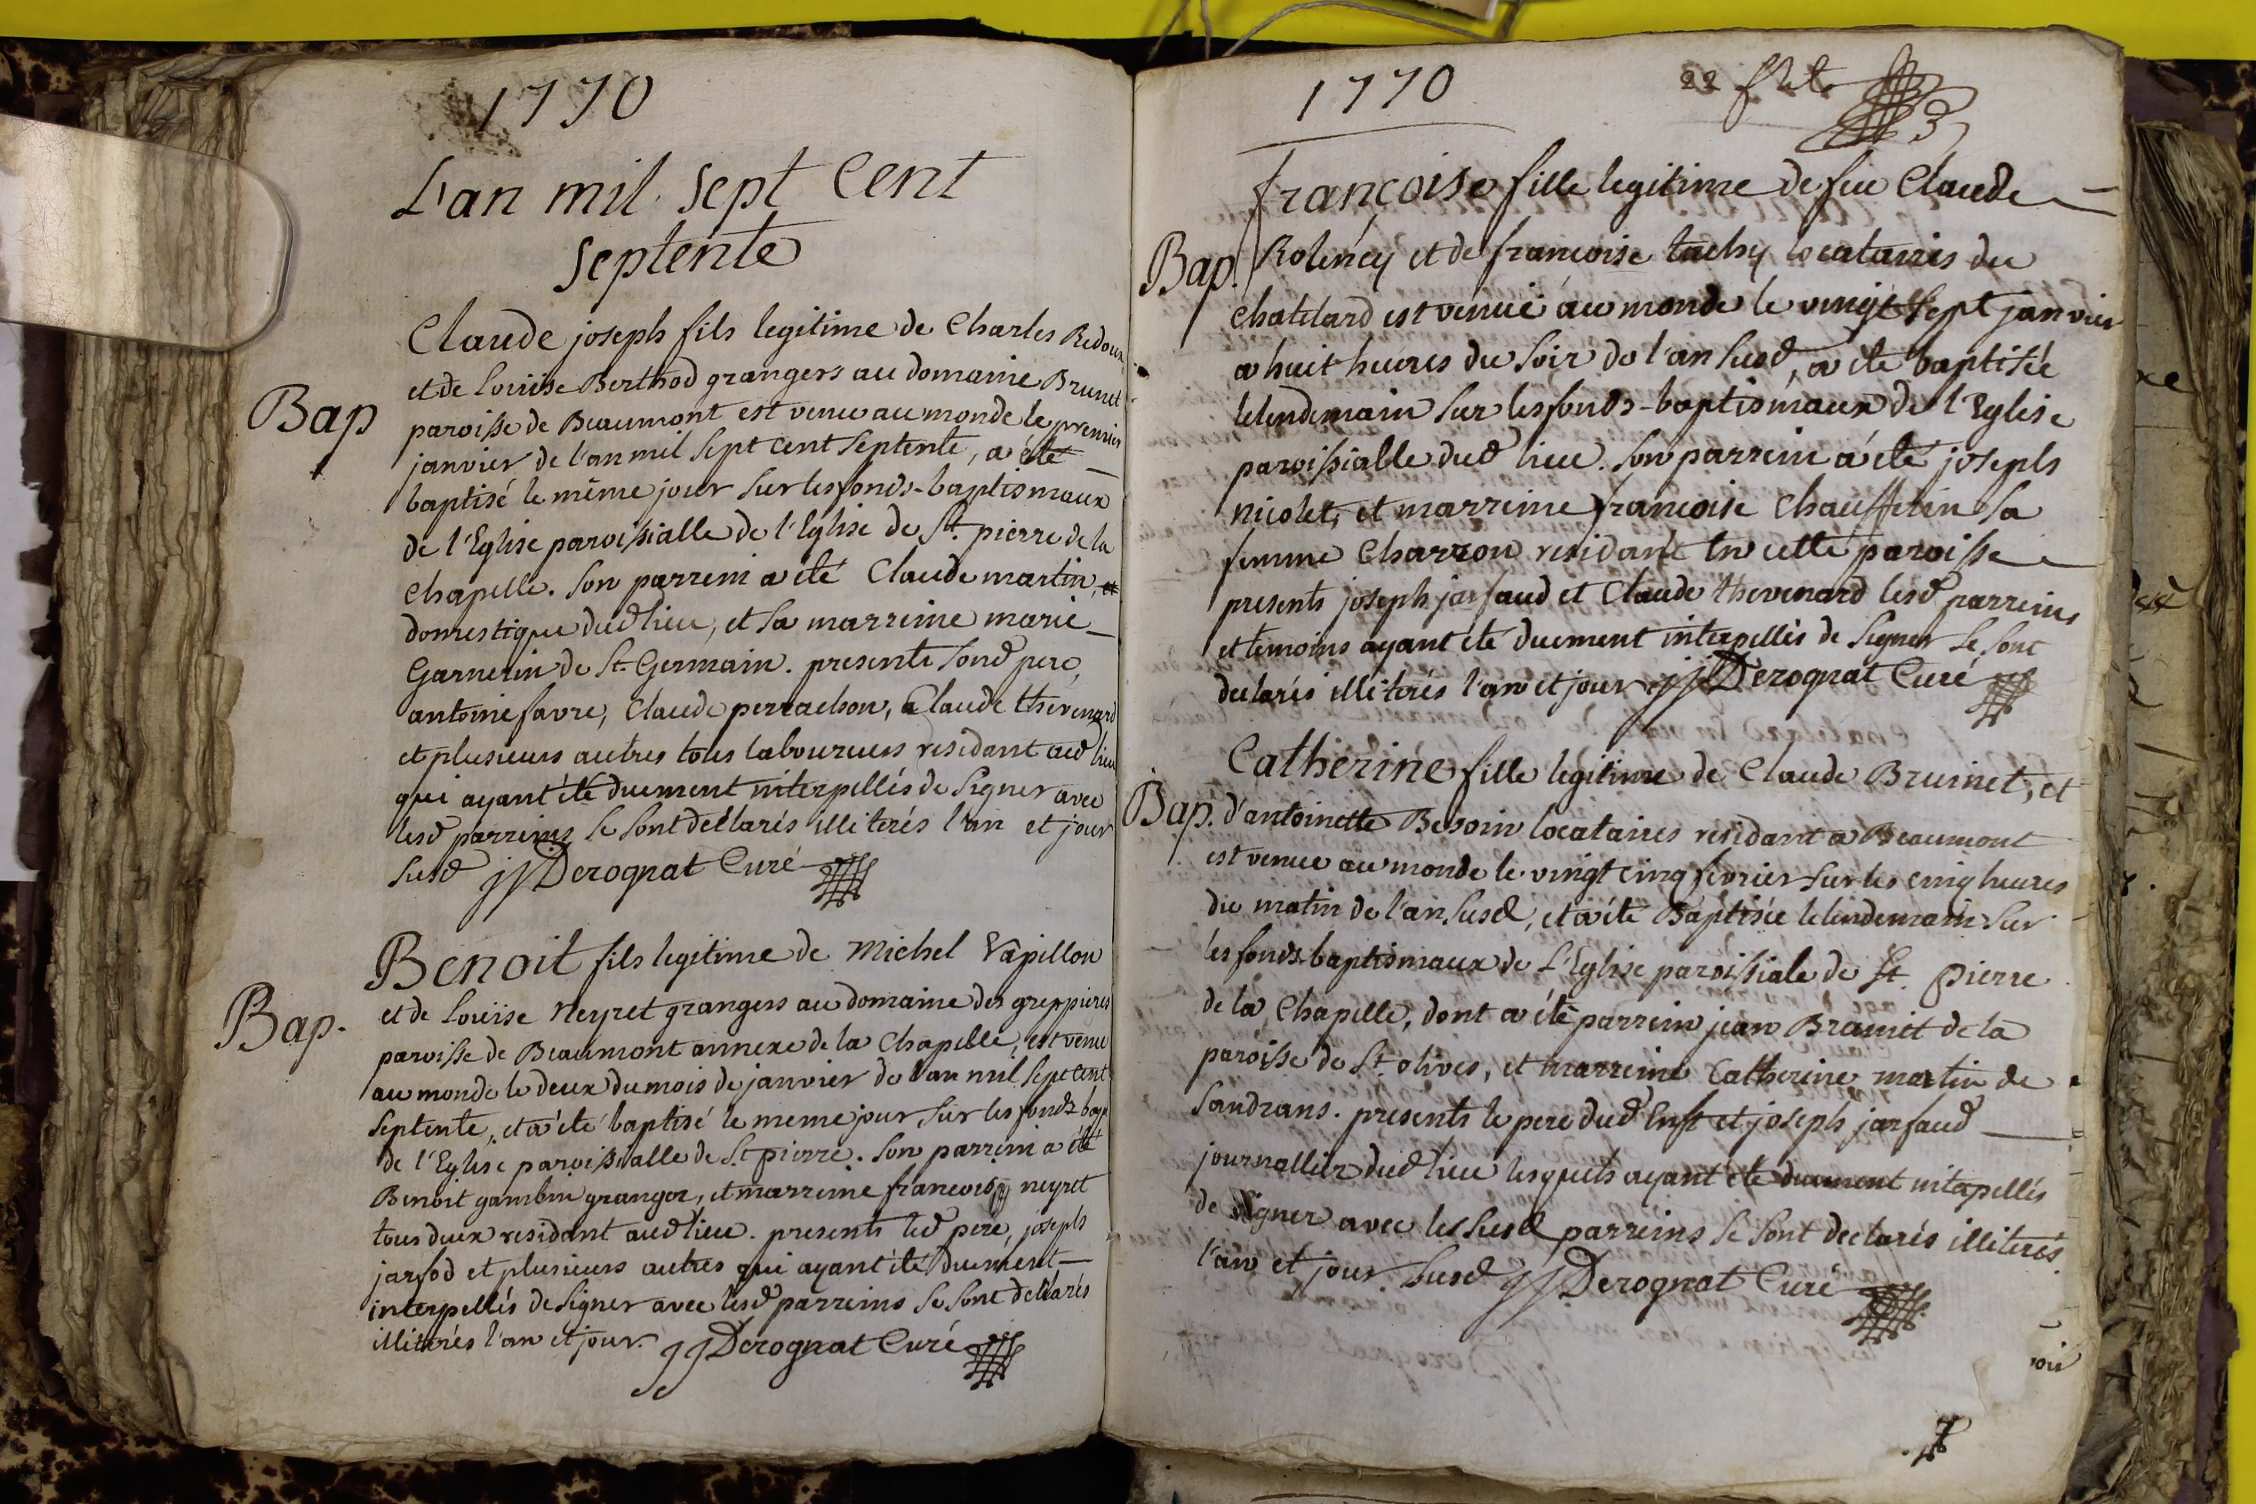 1770
L'an mil sept Cent
septente
Claude joseph fils legitime de Charles Redoux
et de Loüise Berthod grangers au domaine Brunet
Bap
paroisse de Beaumont est venu au monde le premier
janvier de l'an mil sept cent septente, a été
baptisé le même jour sur les fonds-baptismaux
de l'Eglise paroissialle de l'Eglise de St. pierre de la
chapelle. son parrein a eté Claude martin, et
domestique dud lieu, et sa marreine marie
Garnerin de St Germain. presents sond pere,
antoine favre, Claude perrachon, Claude thevenard
et plusieurs autres tous laboureurs residant aud lieu
qui ayant été duement interpellés de signer avec
lesd parreins se sont declarés illiterés l'an et jour
susd jj Derognat Curé
Benoit fils legitime de Michel Vapillon
et de Loüise Neyret grangers au domaine des greppieres
Bap.
paroisse de Beaumont annexe de la Chapelle, est venu
au monde le deux du mois de janvier de l'an mil sept cent
septente, et a été baptisé le meme jour sur les fonds bap
de l'Eglise paroissialle de St pierre. son parrein a été
Benoit gambin granger, et marreine francoise neyret
tous deux residant aud lieu. presents led pere, joseph
jarfod et plusieurs autres qui ayant été duement
interpellés de signer avec lesd parreins se sont declarés
illiterés l'an et jour. jj Derognat Curé
1770
22 3
francoise fille legitime de feu Claude
Bap. Roleney et de francoise tachy locatairis du
chatelard est venue au monde le vingt sept janvier
a huit heures du soir de l'an susd, a été baptisée
le lendemain sur les fonds-baptismaux de l'Eglise
paroissialle dud lieu. son parrein a été joseph
nicolet, et marreine francoise Chauffelin sa
femme Charron residant en cette paroisse
presents joseph jarfaud et Claude thevenard lesd parreins
et temoins ayant été duement interpellés de signer se sont
declarés illiterés l'an et jour jj Derognat Curé
Catherine fille legitime de Claude Bruinet, et
Bap. d'antoinette Besoin locataires residant a Beaumont
est venue au monde le vingt cinq fevrier sur les cinq heures
du matin de l'an susd, et a été Baptisée le lendemain sur
les fonds baptismaux de L'Eglise paroissiale de St. pierre
de la Chapelle, dont a été parrein jean Bramet de la
paroisse de St. olives, et marreine Catherine martin de
sandrans. presents le pere dud Enft et joseph jarfaud
journallier dud lieu lesquels ayant été duement interpellés
de signer avec les susd parreins se sont declarés illiterés
l'an et jour susd jj Derognat Curé